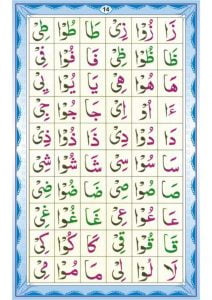 14
زَا زُوْا زِىْ طَا طُوْا طِىْ
ظَا ظُوْا ظِىْ فَا فُوْا فِىْ
هَا هُوْا هِىْ يَا يُوْا يِىْ
ءَا اُوْا اِىْ جَا جُوْا جِىْ
دَا دُوْا دِىْ ذَا ذُوْا ذِىْ
سَا سُوْا سِىْ شَا شُوْا شِىْ
صَا صُوْا صِىْ ضَا ضُوْا ضِىْ
عَا عُوْا عِىْ غَا غُوْا غِىْ
قَا قُوْا قِىْ كَا كُوْا كِىْ
لَا لُوْا لِىْ مَا مُوْا مِىْ